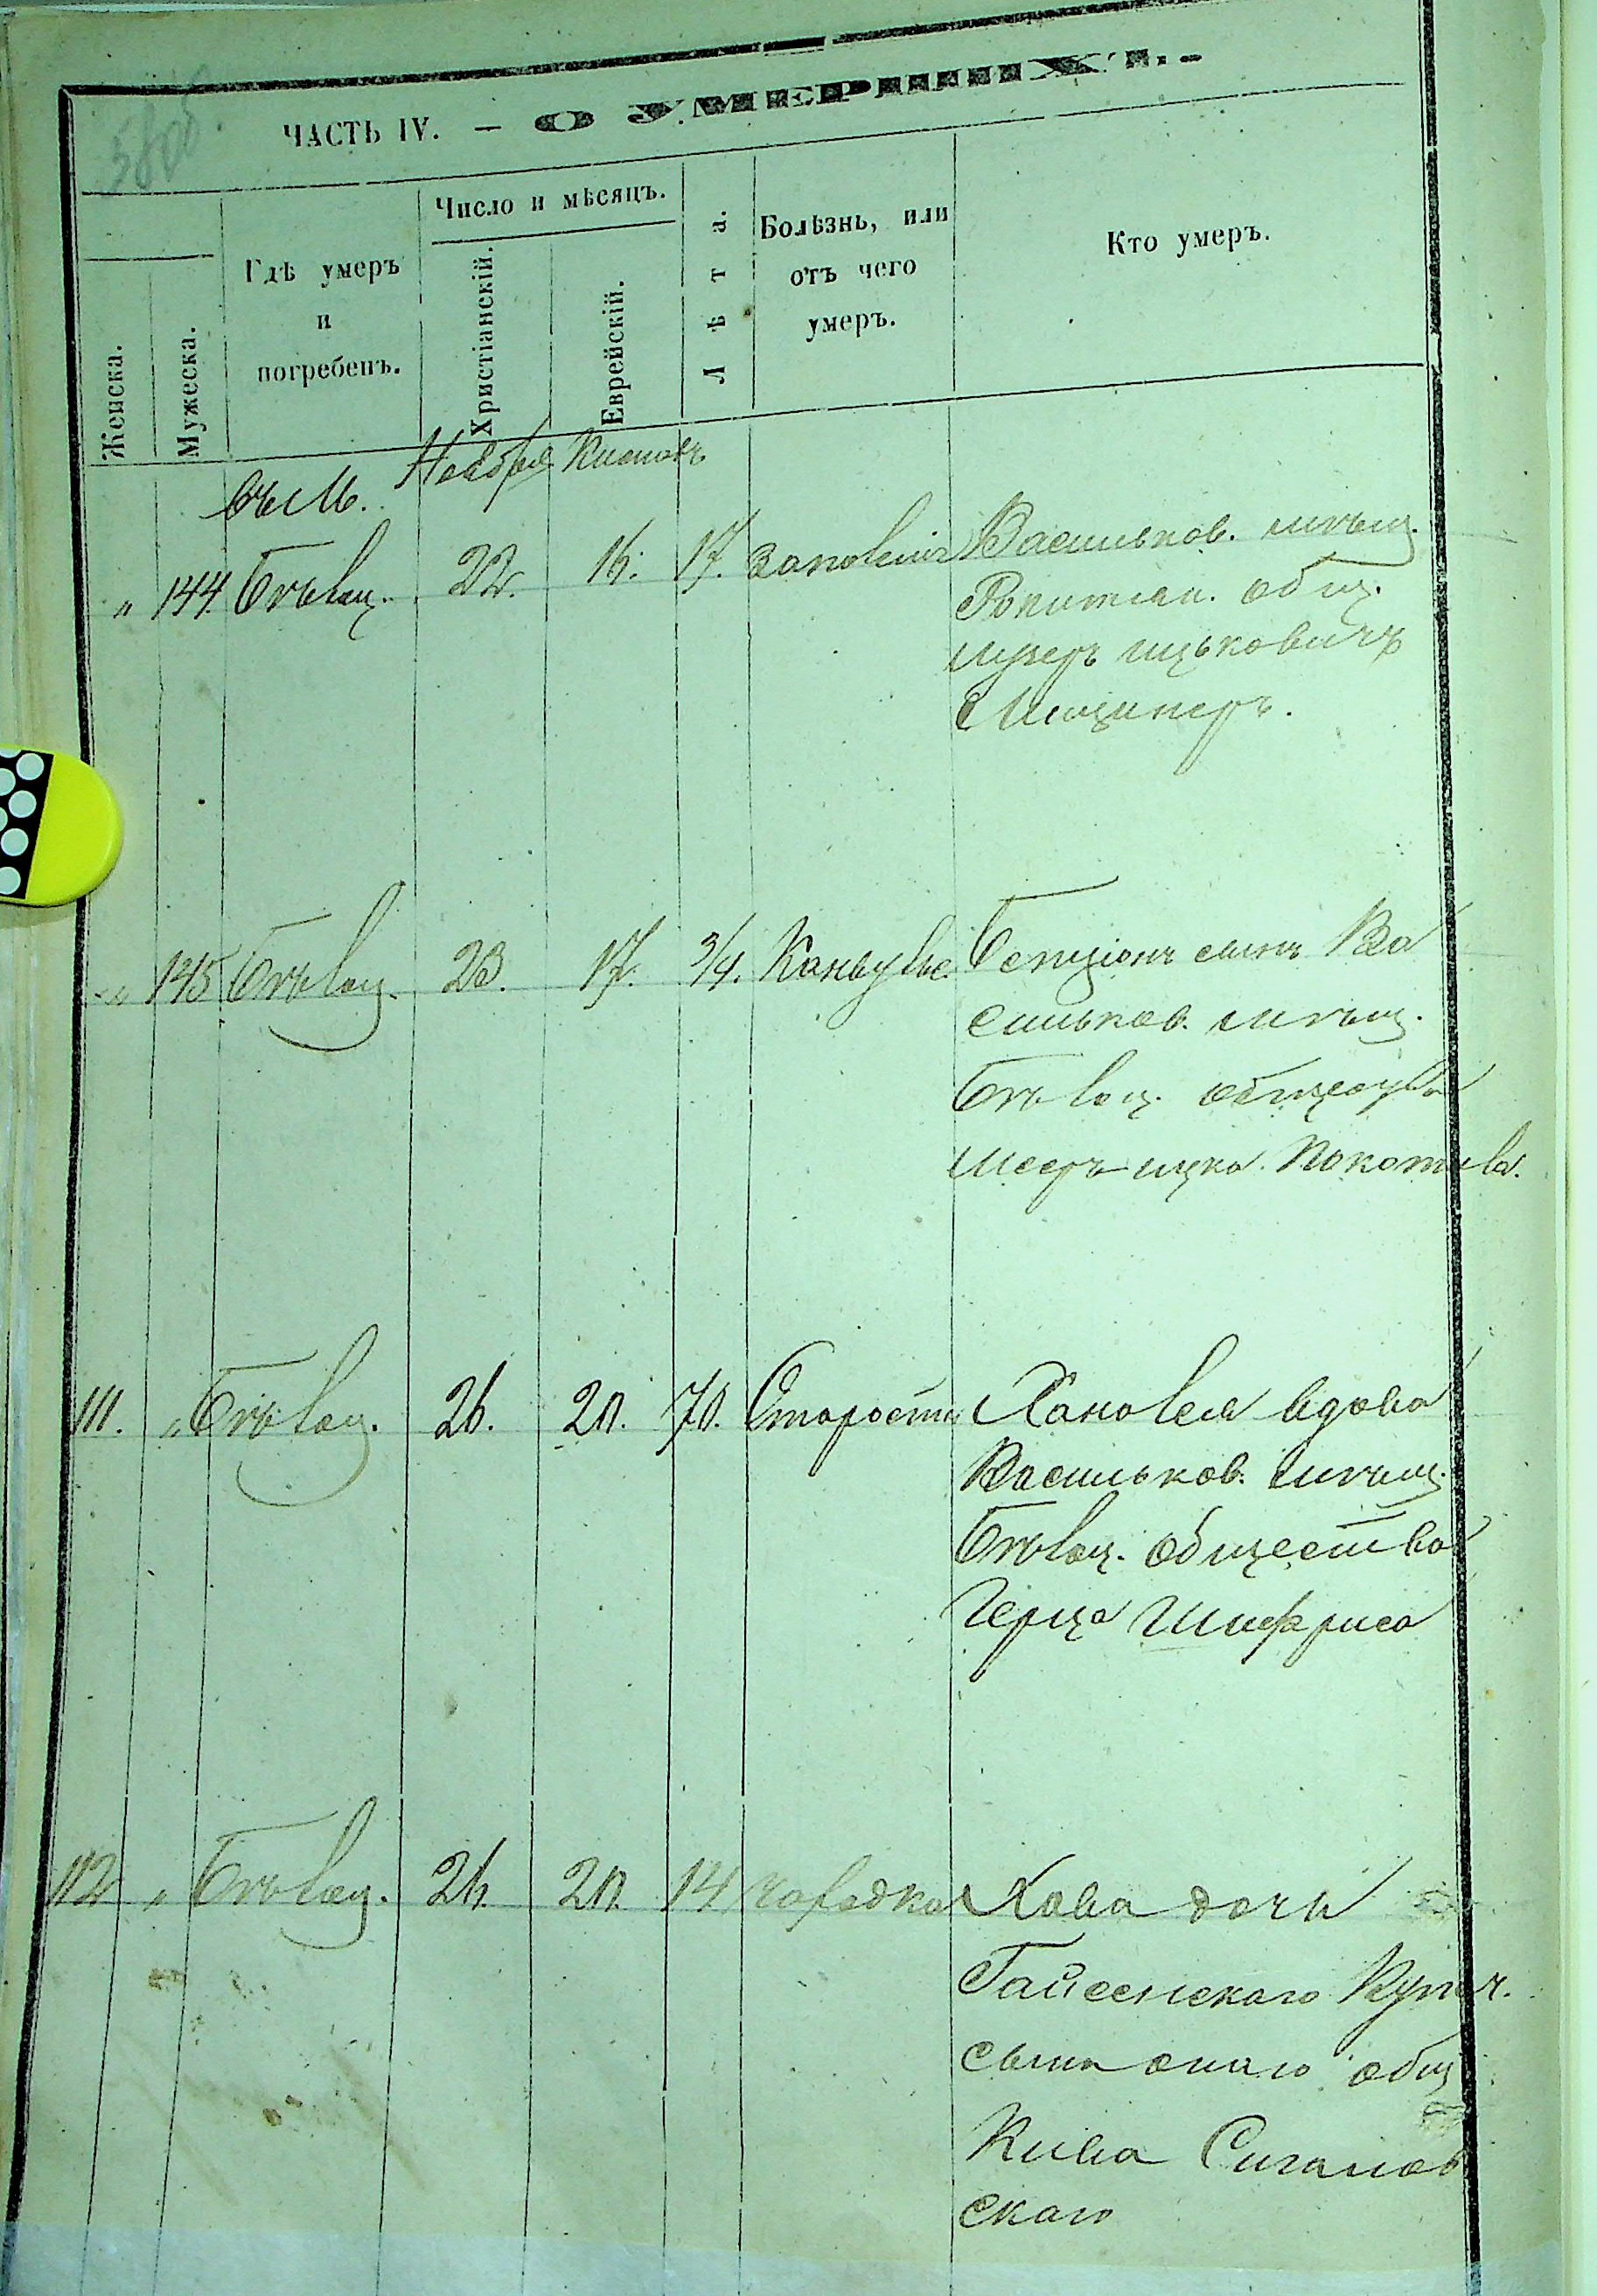 580об.
ЧАСТЬ IV. — О УМЕРШИХЪ.
Женска.
Мужеска.
Гдѣ умеръ
и
погребенъ.
Число и мѣсяцъ.
Христіанскій.
Еврейскій.
Лѣта.
Болѣзнь, или
отъ чего
умеръ.
Кто умеръ.
въ М. Ноября Кислевъ
" 144 Бѣлоц. 22. 16. 17. Васильков. мѣщ.
Рокитян. общ.
ицьковичъ
" 145 Бѣлоц. 23. 17. 3/4. Конвульс. Бенціонъ сынъ Ва
сильков. мѣщ.
Бѣлоц. общества
Мееръ ицка. Покотила.
111. " Бѣлоц. 26. 20. 70. Старости Хановея вдова
Васильков. мѣщ.
Бѣлоц. общества
Герца Шифриса
112 " Бѣлоц. 26. 20. 14 Хава дочь
Гайсенскаго Купеч.
сына онаго общ
Кива Сигалов
скаго